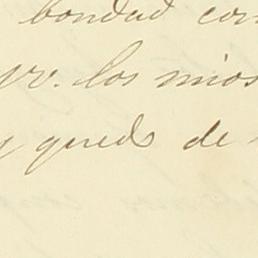 bondad con
los mios
y quedo de